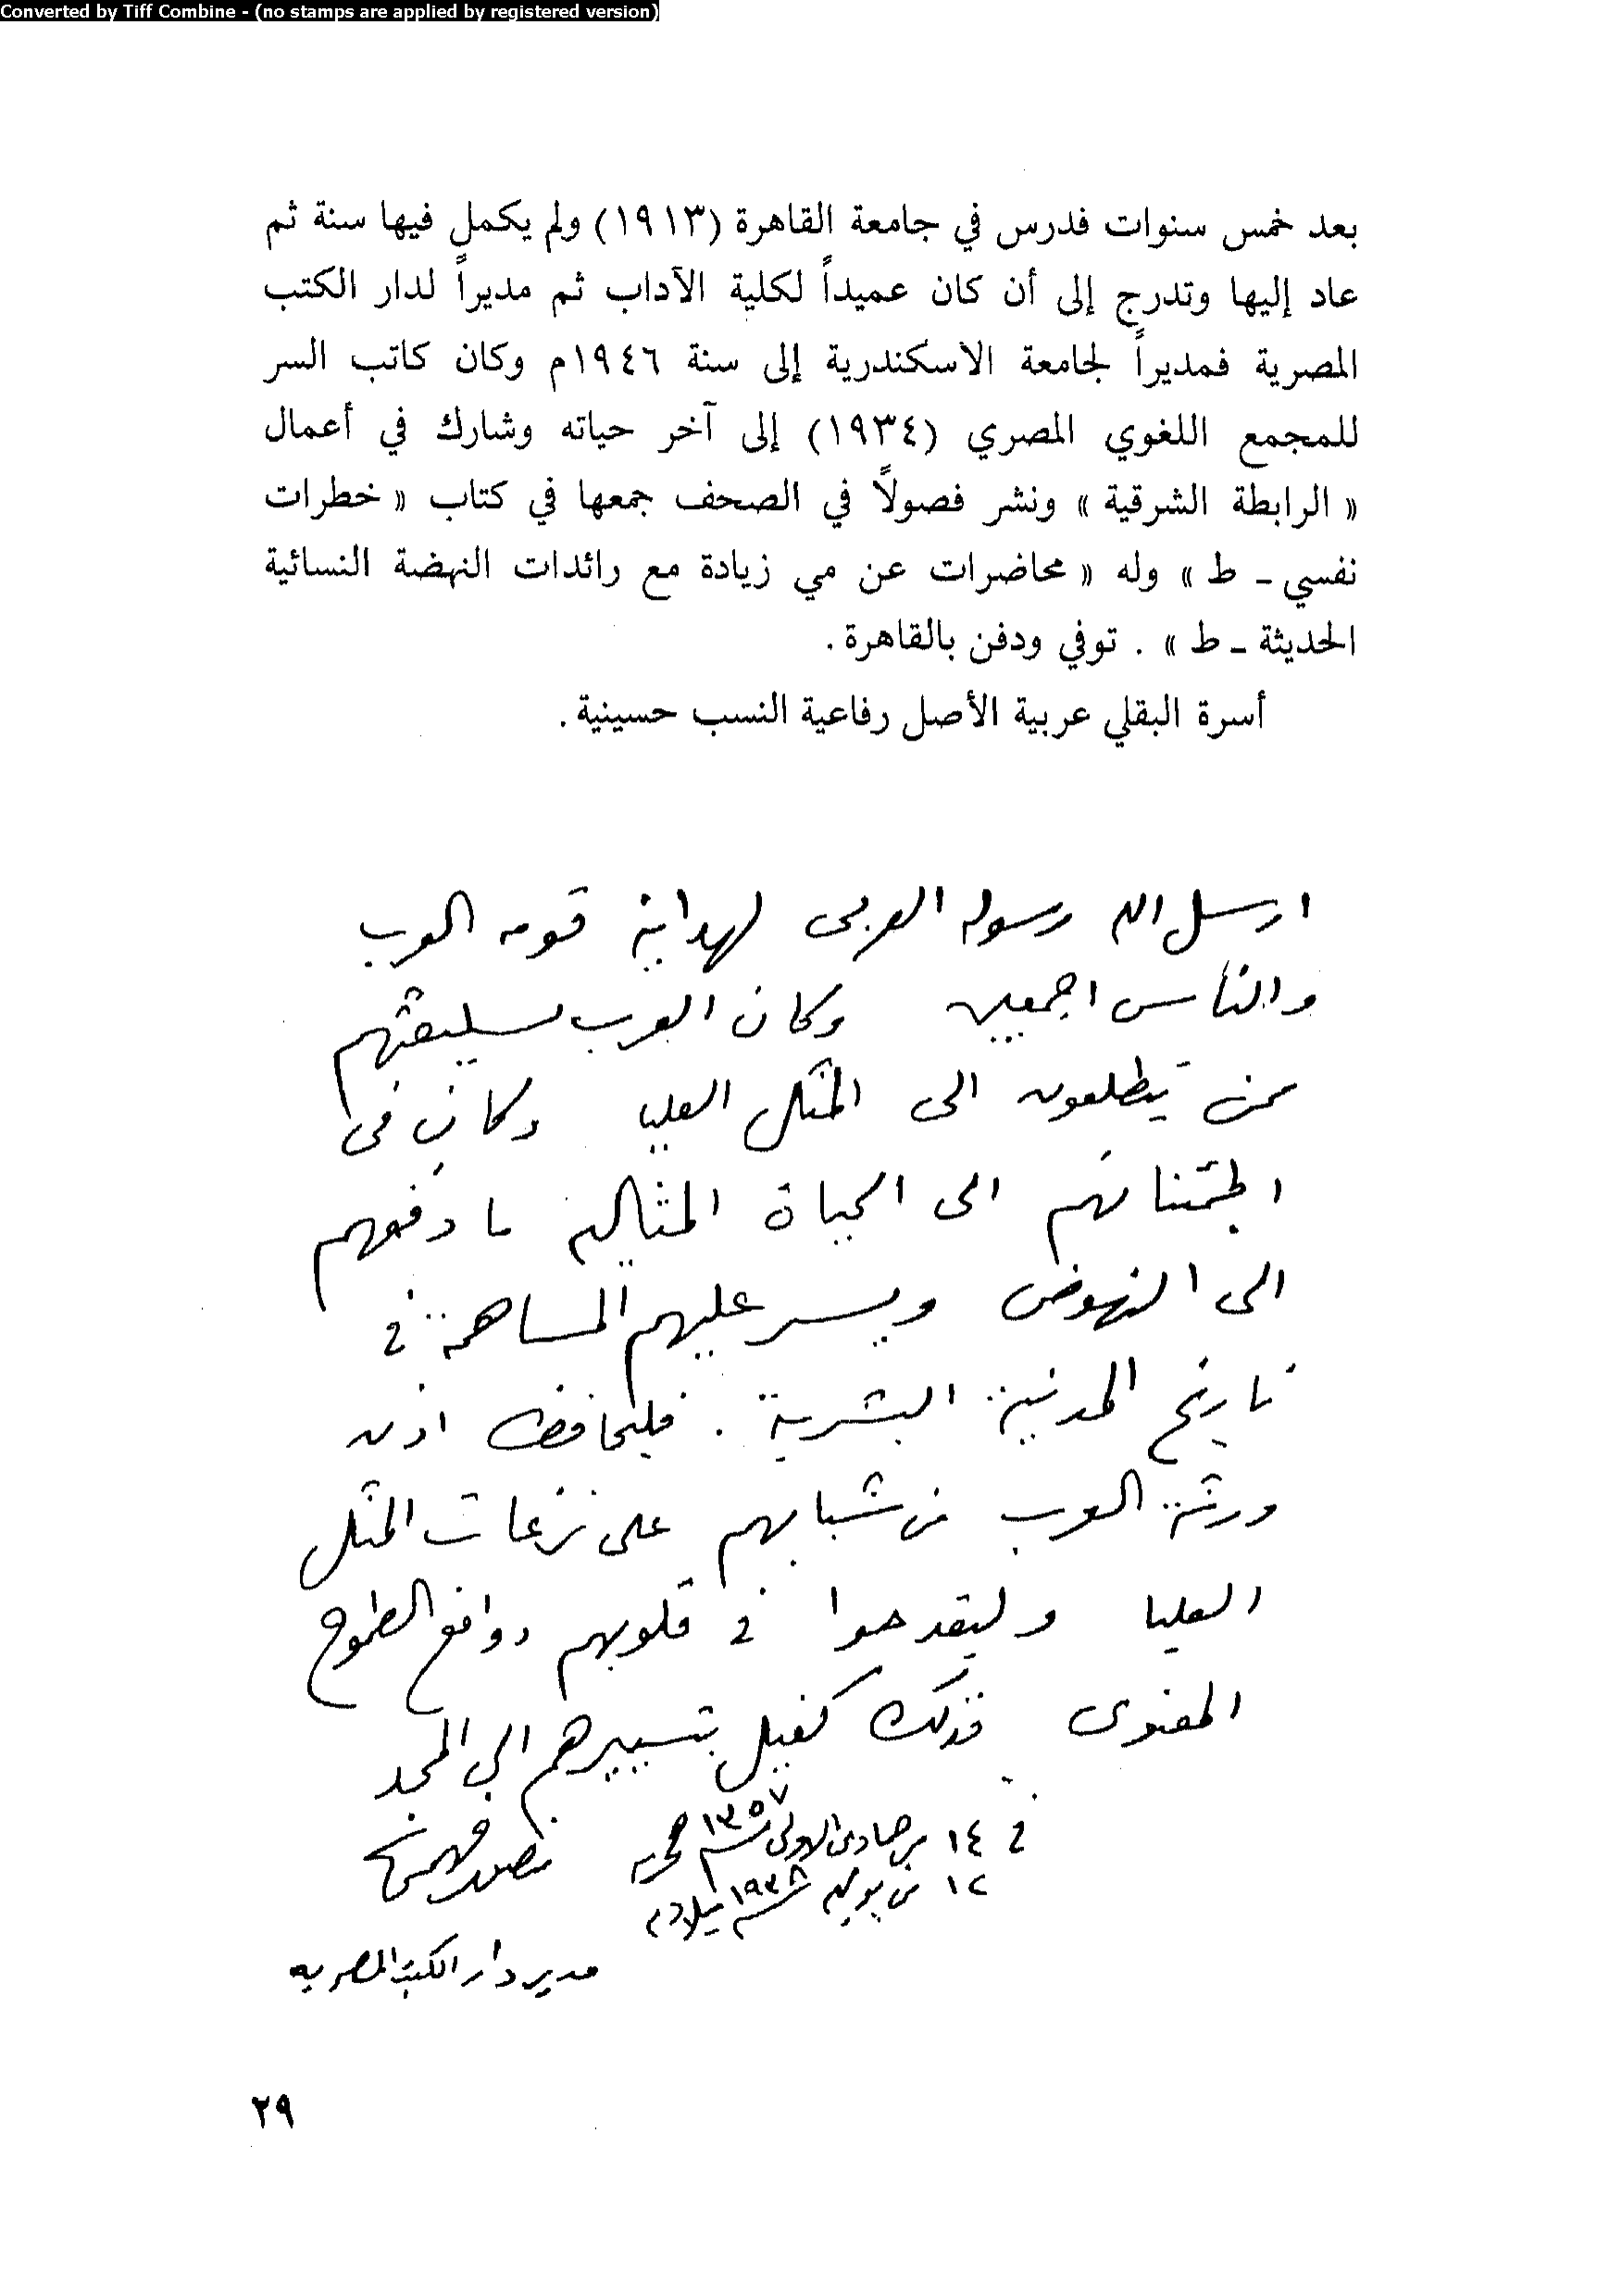 Converted by Tiff Combine - (no stamps are applied by registered version)
بعد خمس سنوات فدرس في جامعة القاهرة (١٩١٣) ولم يكمل فيها سنة ثم
عاد إليها وتدرج إلى أن كان عميداً لكلية الآداب ثم مديراً لدار الكتب
المصرية فمديراً لجامعة الاسكندرية إلى سنة ١٩٤٦م وكان كاتب السر
للمجمع اللغوي المصري (١٩٣٤) إلى آخر حياته وشارك في أعمال
« الرابطة الشرقية » ونشر فصولاً في الصحف جمعها في كتاب « خطرات
نفسي ـ ط » وله « محاضرات عن مي زيادة مع رائدات النهضة النسائية
الحديثة ـ ط » . توفي ودفن بالقاهرة .
أسرة البقلي عربية الأصل رفاعية النسب حسينية .
ارسل الله رسوله العربى لهداية قومه العرب
والناس اجمعين وكان العرب بسليقتهم
ممن يتطلعون الى المثل العليا وكان فى
اطمئنانهم الى الحياة المثاليه ما دفعهم
الى النهوض ويسر عليهم المساهمة فى
تاريخ المدنية البشرية . فليحافظ اذن
ورثة العرب من شبابهم على نزعات المثل
العليا وليقدحوا فى قلوبهم دوافع الطموح
المعنوى فذلك كفيل بتسييرهم الى المجد
فى ١٤ من جمادى الاولى سنة ١٣٥٧ هجريه منصور فهمى
١٢ من يوليه سنة ١٩٣٨ ميلاديه
مدير دار الكتب المصريه
٢٩